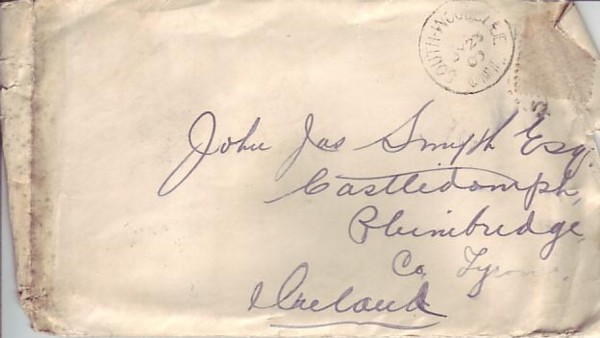 SOUTH-WOODSLEE
23
ONT.
John Jas Smyth Esq.
Castledamph,
Plumbridge,
Co. Tyrone.
Ireland